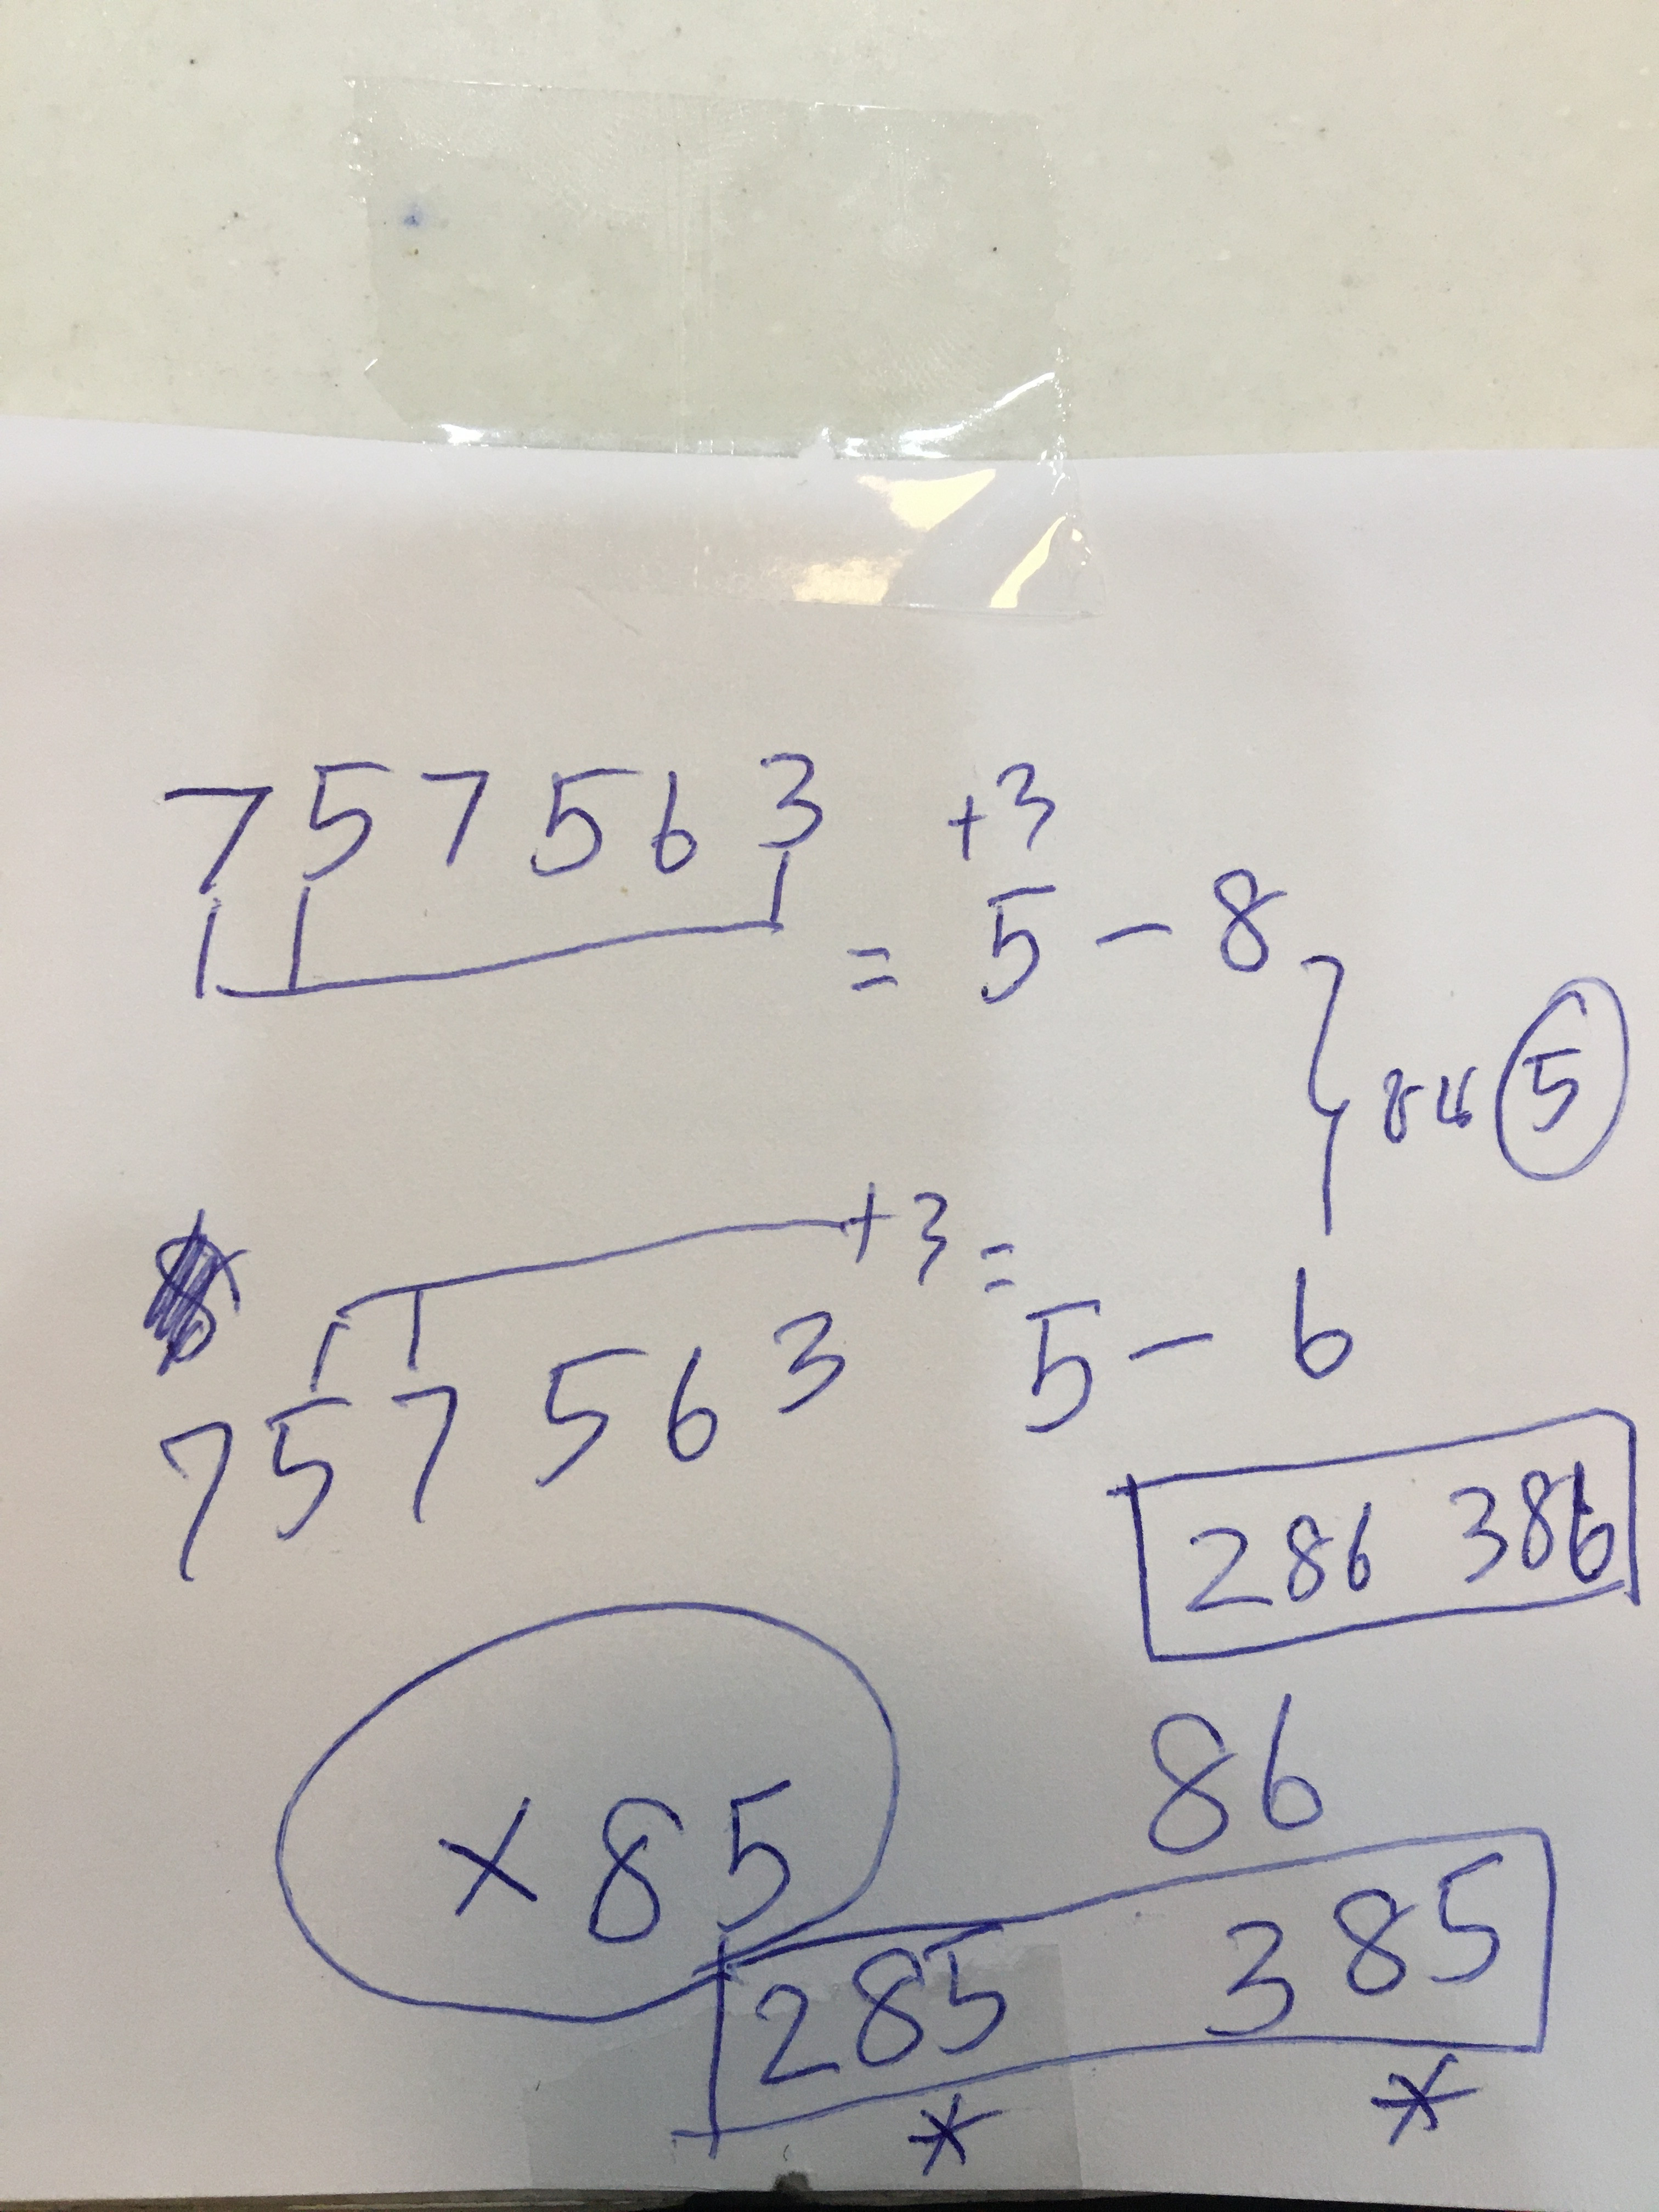 757563 +3
= 5 - 8
5
+3 =
757563 5 - 6
286 386
86
× 85
285 385
* *